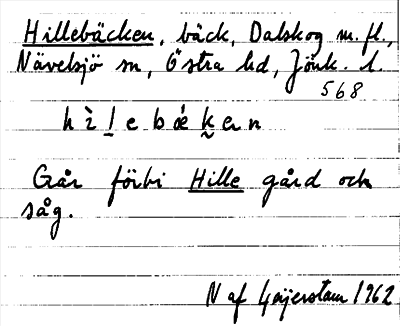 Hillebäcken, bäck, Dalskog m. fl.,
Nävelsjö sn, Östra hd, Jönk. l.
568
h ì l e b ǽ k e n
Går förbi Hille gård och
såg.
N af Geijerstam 1962